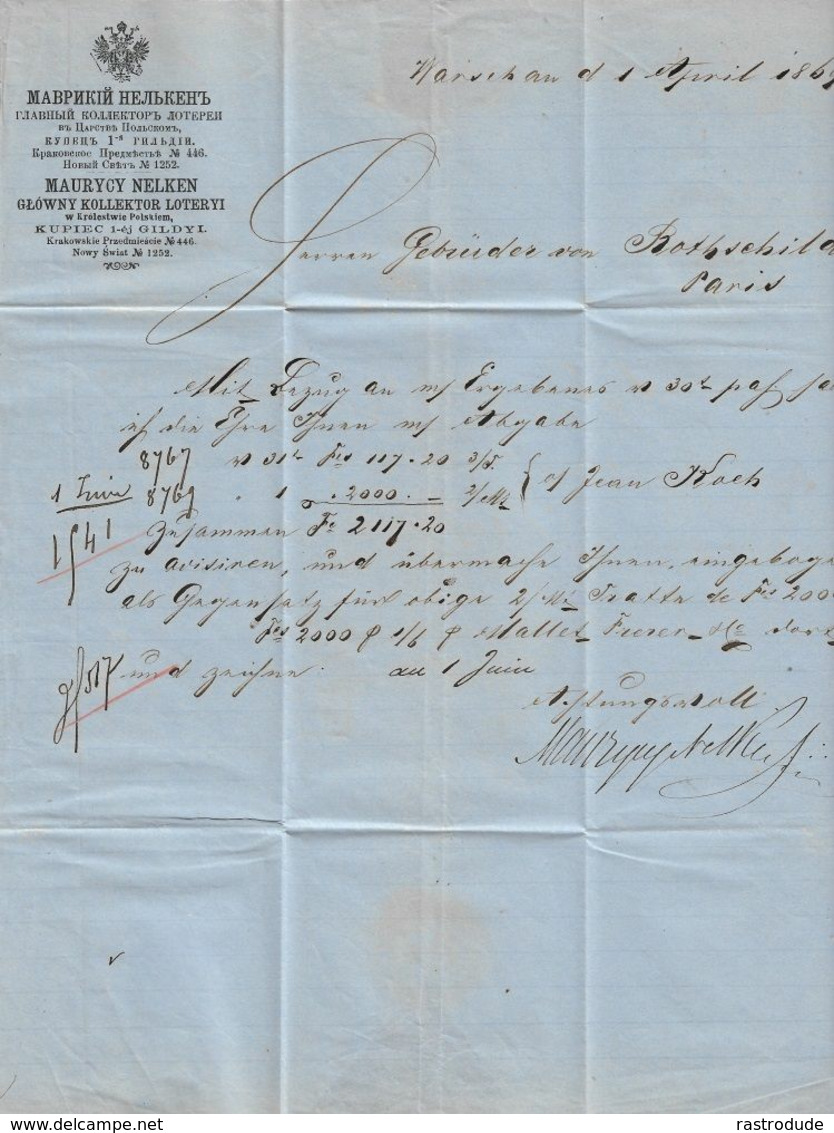 МАВРИКІЙ НЕЛЬКЕНЪ
ГЛАВНЫЙ КОЛЛЕКТОРЪ ЛОТЕРЕИ
въ Царствѣ Польскомъ,
КУПЕЦЪ 1-й ГИЛЬДІИ.
Краковское Предмѣстье № 446.
Новый Свѣтъ № 1252.
MAURYCY NELKEN
GŁÓWNY KOLLEKTOR LOTERYI
w Królestwie Polskiem,
KUPIEC 1-éj GILDYI.
Krakowskie Przedmieście № 446.
Nowy Świat № 1252.
Warschau d 1 April 186
Herren Gebrüder von Rothschild
Paris
Mit Bezug an m/ Ergebenes v 30t pass
ich die Ehre Ihnen m/ Abgabe
8767 v 31t Fcs 117.20 3/T.
1 Juin 8769 " 1 " 2000.— 2/Mt o/ Jean Koch
zusammen Fc 2117.20
zu avisiren, und übermache Ihnen, eingeboge
als Gegensatz für obige 2/Mt Tratte de Fcs 2000
Fcs 2000 p 1/6 p Mallet Freres & Ce dort
und zeichne au 1 Juin
Achtungsvoll
Maurycy Nelken
rastrodude